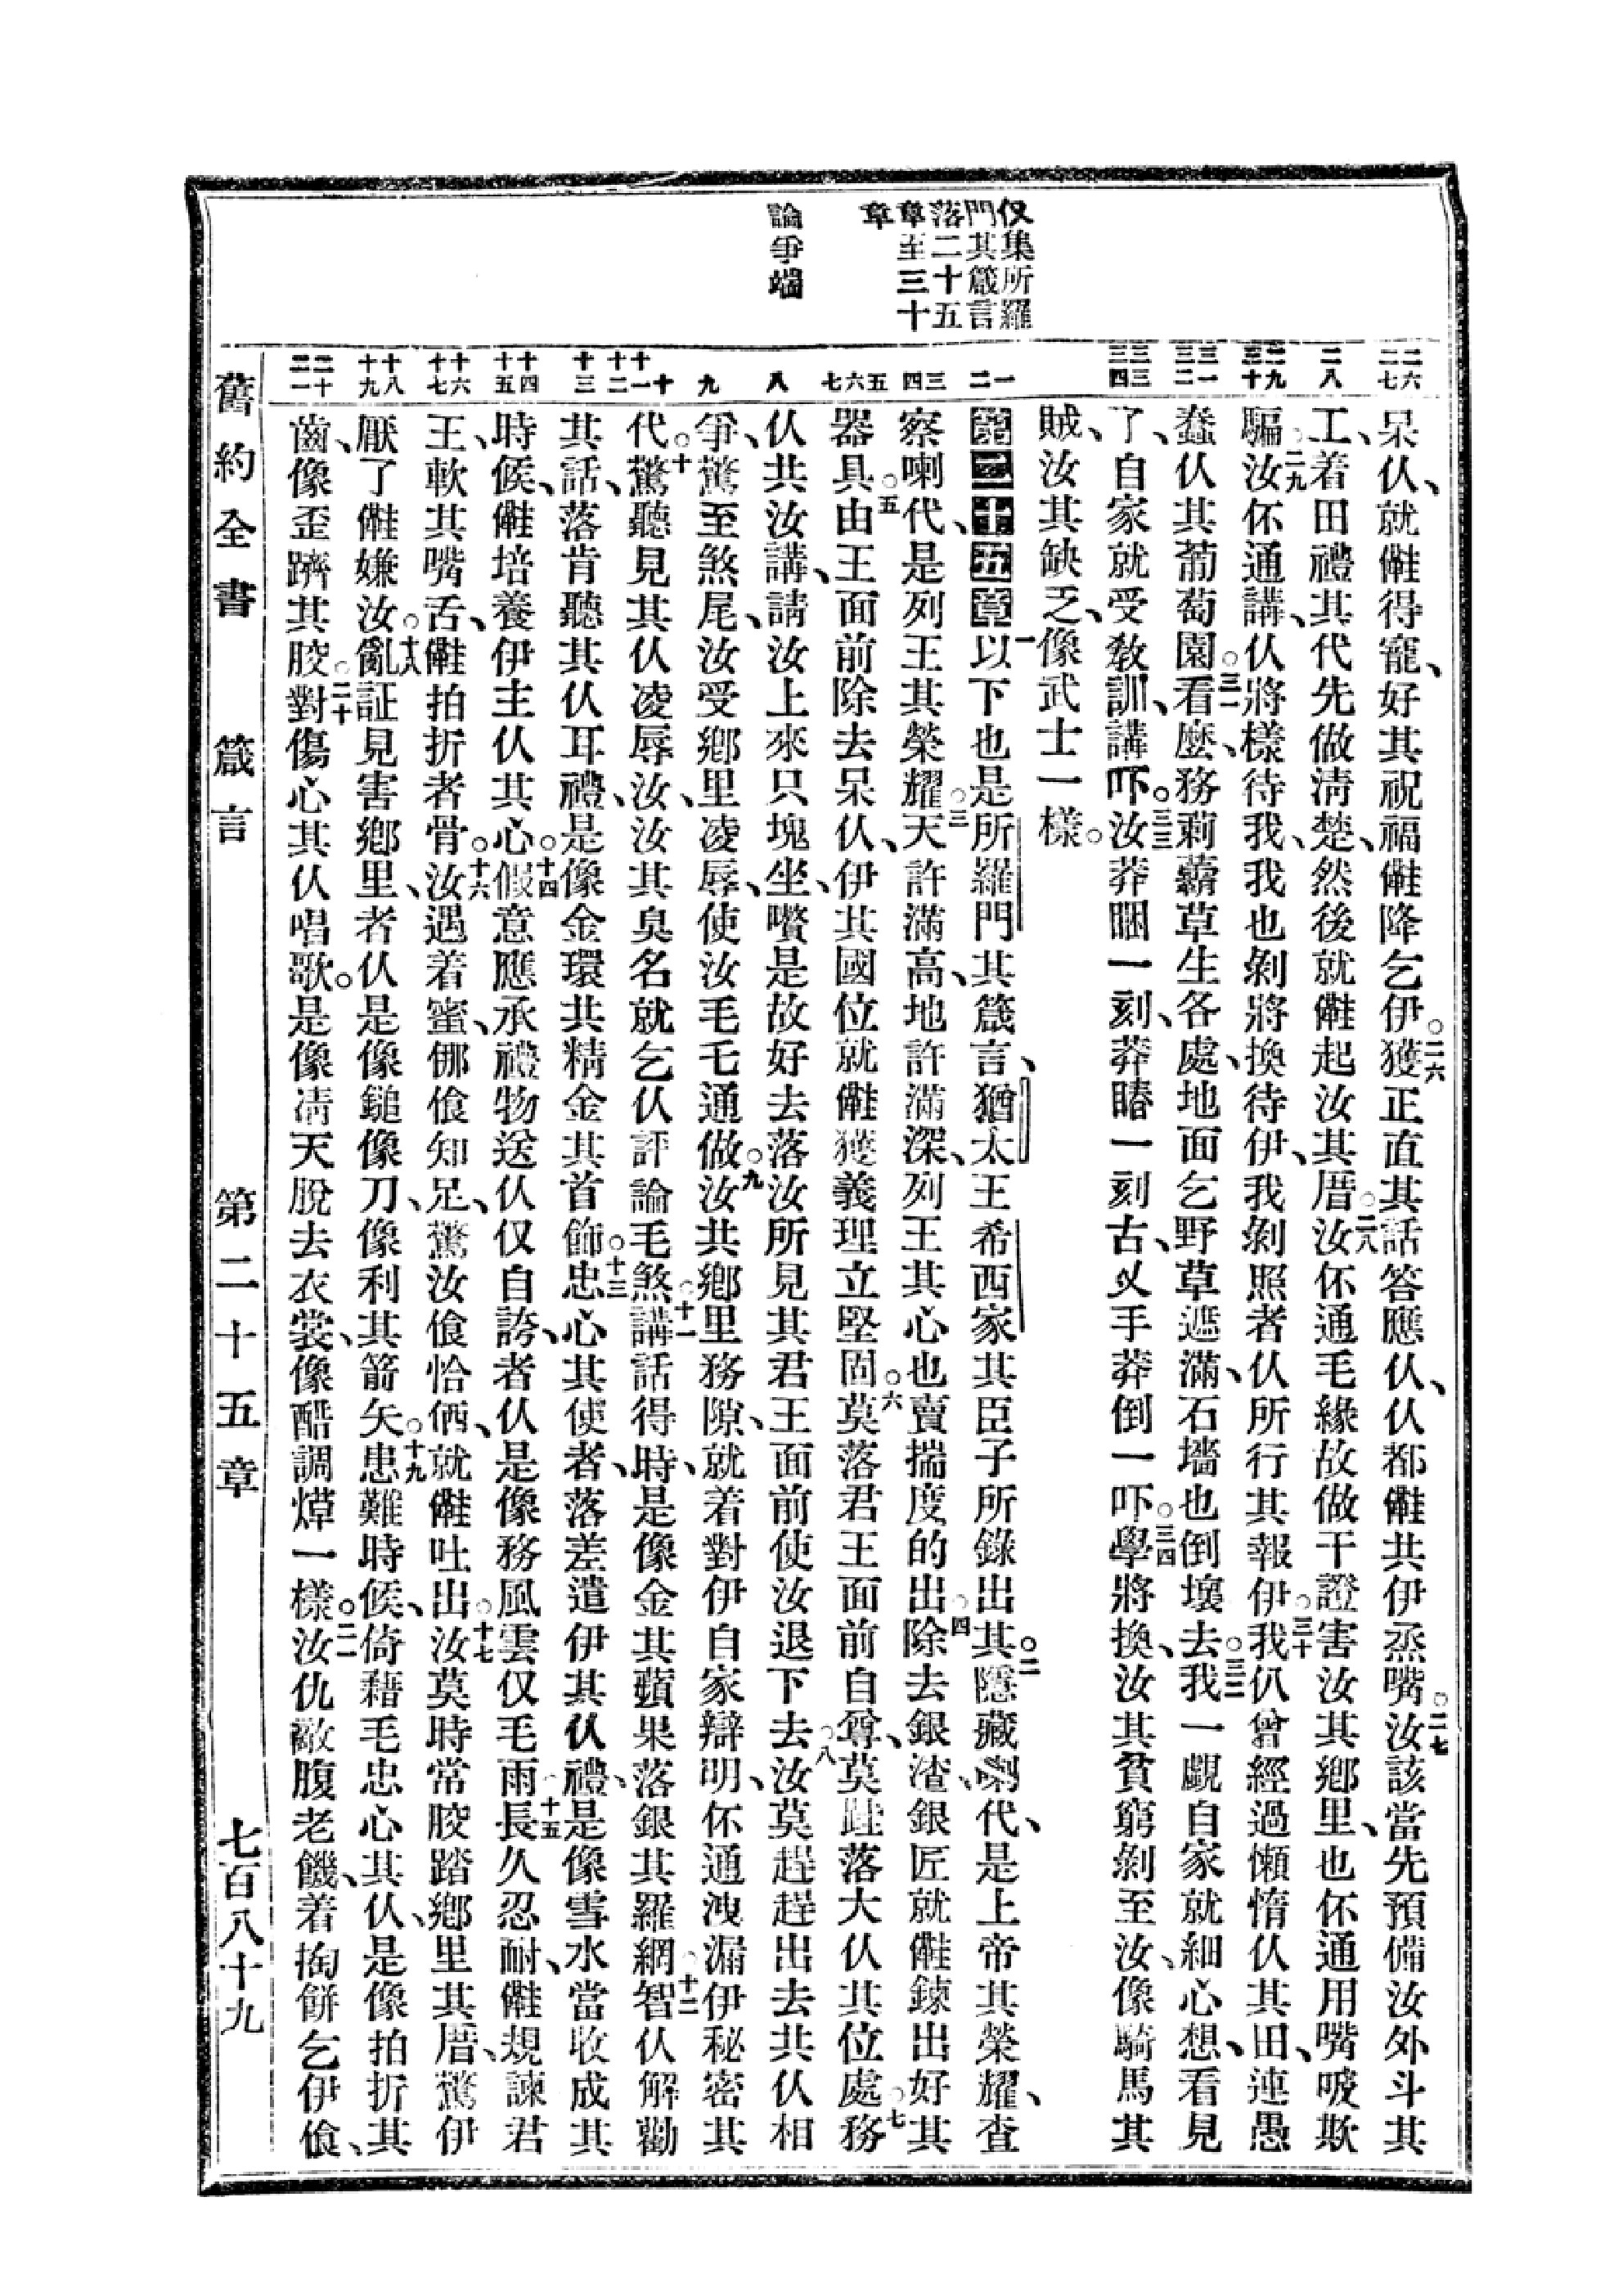 仅集所羅
門其箴言
落二十五
章至三十
章
論爭端
二六 二七
二八
二九 三十
三一 三二
三三 三四
一 二
三 四
五 六 七
八
九
十 十一 十二
十三
十四 十五
十六 十七
十八 十九
二十 二一
呆仈、就㑽得寵、好其祝福㑽降乞伊。二六獲正直其話答應仈、仈都㑽共伊烝嘴。二七汝該當先預備汝外斗其
工、着田禮其代先做淸楚、然後就㑽起汝其厝。二八汝伓通毛緣故做干證害汝其鄕里、也伓通用嘴唆欺
騙。二九汝伓通講、仈將樣待我、我也剝將換待伊、我剝照者仈所行其報伊。三十我仈曾經過懶惰仈其田、連愚
蠢仈其葡萄園。三一看麼、務莿藦草生各處、地面乞野草遮滿、石墻也倒壞去。三二我一覷自家就細心想、看見
了、自家就受敎訓、講吓。三三汝莽睏一刻、莽䐏一刻古、乂手莽倒一吓。三四學將換、汝其貧窮剝至汝、像騎馬其
賊、汝其缺乏、像武士一樣。
第二十五章一以下也是所羅門其箴言、猶太王希西家其臣子所錄出其。二隱藏喇代、是上帝其榮耀、查
察喇代、是列王其榮耀。三天許滿高、地許滿深、列王其心也賣揣度的出。四除去銀渣、銀匠就㑽鍊出好其
器具。五由王面前除去呆仈、伊其國位就㑽獲義理立堅固。六莫落君王面前自尊、莫跬落大仈其位處。七務
仈共汝講、請汝上來只塊坐、囋是故好去落汝所見其君王面前使汝退下去。八汝莫趕趕出去共仈相
爭、驚至煞尾、汝受鄕里凌辱、使汝毛乇通做。九汝共鄕里務隙、就着對伊自家辯明、伓通洩漏伊秘密其
代。十驚聽見其仈凌辱汝、汝其臭名就乞仈評論毛煞。十一講話得時、是像金其蘋果落銀其羅網。十二智仈解勸
其話、落肯聽其仈耳禮、是像金環共精金其首飾。十三忠心其使者、落差遣伊其仈禮、是像雪水當收成其
時候、㑽培養伊主仈其心。十四假意應承禮物送仈仅自誇、者仈是像務風雲仅毛雨。十五長久忍耐、㑽規諫君
王、軟其嘴舌、㑽拍折者骨。十六汝遇着蜜、㑚飡知足、驚汝飡恰価、就㑽吐出。十七汝莫時常骹踏鄕里其厝、驚伊
厭了㑽嫌汝。十八亂証見害鄕里、者仈是像鎚像刀、像利其箭矢。十九患難時候、倚藉毛忠心其仈、是像拍折其
齒、像歪躋其骹。二十對傷心其仈唱歌。是像凊天脫去衣裳、像酷調㷛一樣。二一汝仇敵腹老饑、着掏餅乞伊飡、
舊約全書　箴言　第二十五章　七百八十九